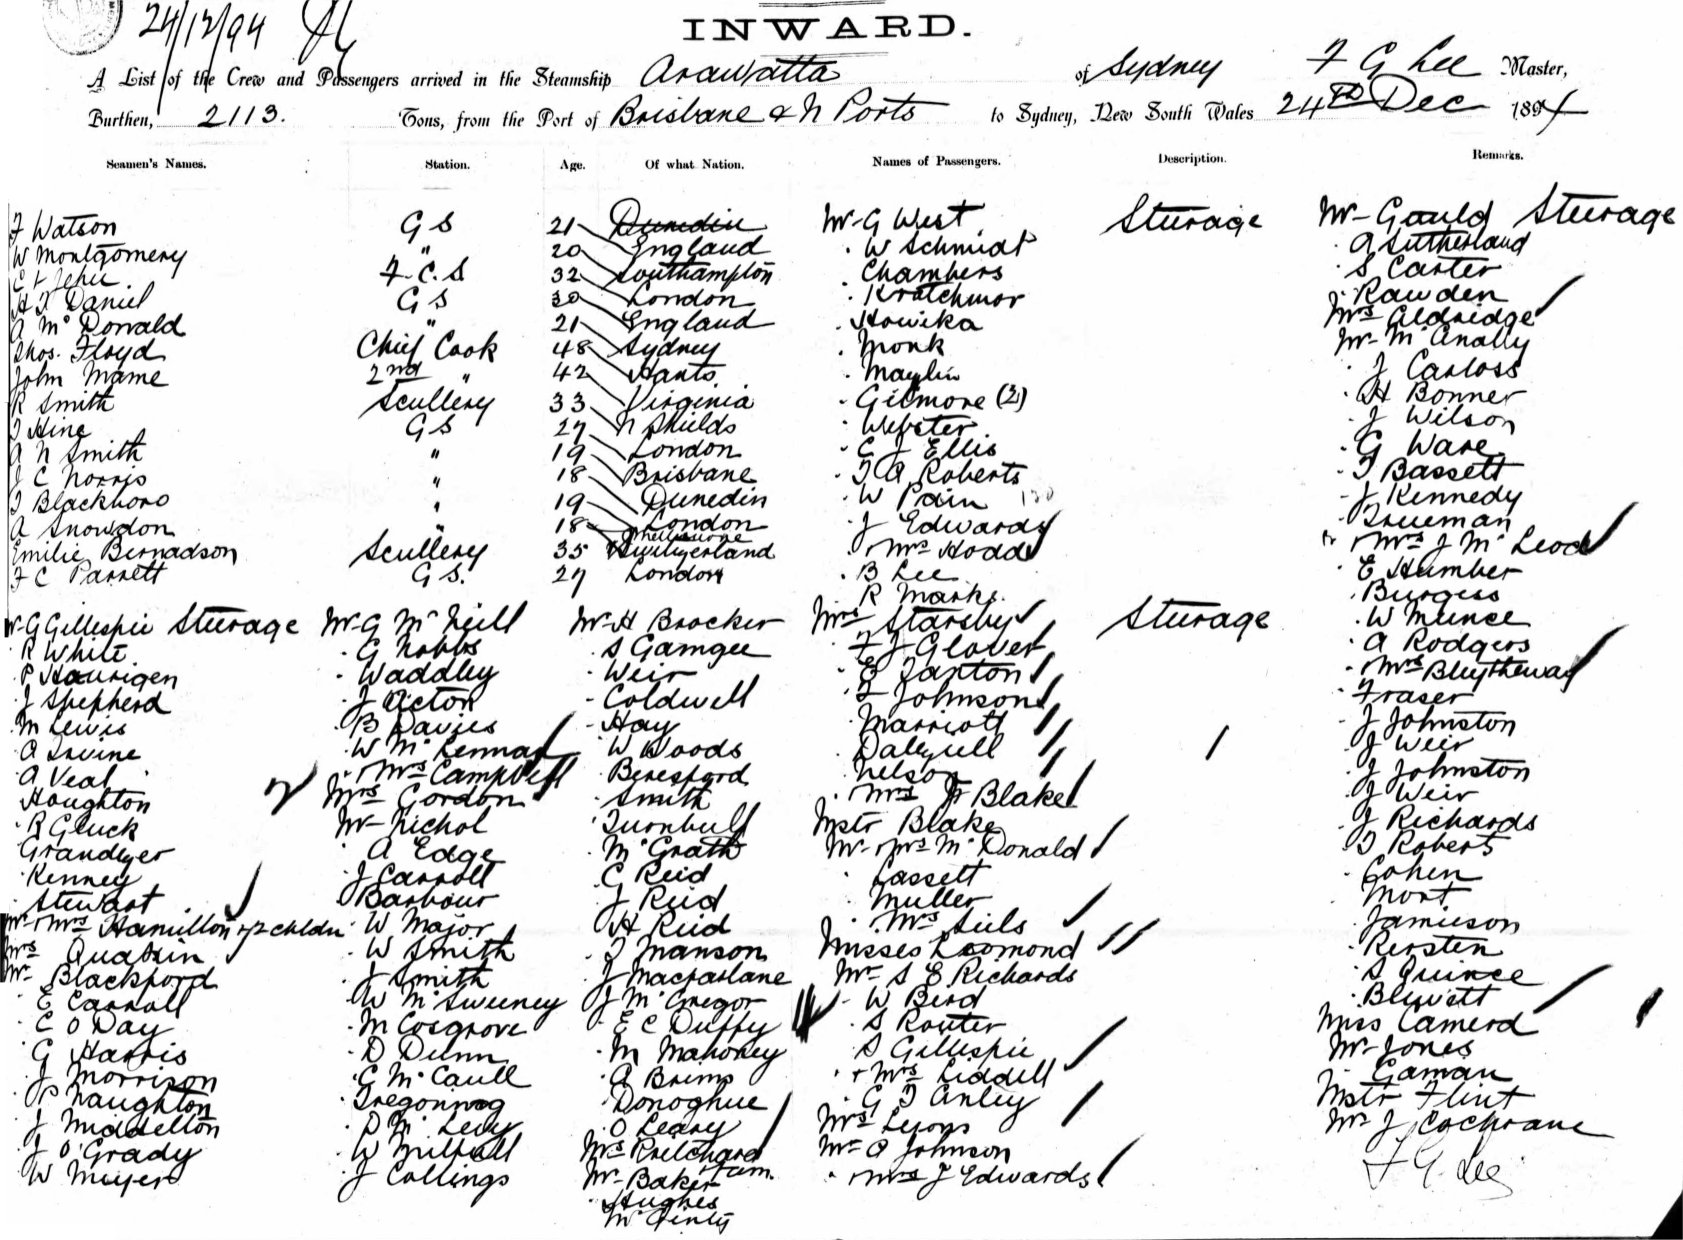 24/12/94
INWARD.
A List of the Crew and Passengers arrived in the Steamship Arawatta of Sydney F G Lee Master,
Burthen, 2113. Tons, from the Port of Brisbane & N Ports to Sydney, New South Wales 24th Dec 1894
Seamen's Names. Station. Age. Of what Nation. Names of Passengers. Description. Remarks.
F Watson G S 21 Dunedin
W Montgomery " 20 England
Jehu F. C. S 32 Southampton
Daniel G S 30 London
A McDonald " 21 England
Thos. Floyd Chief Cook 48 Sydney
John Mame 2nd " 42 Hants
R Smith Scullery 33 Virginia
Hine G S 27 N Shields
A N Smith " 19 London
J C Norris " 18 Brisbane
Blackboro " 19 Dunedin
A Snowdon 18 London
Melbourne
Emilie Bernadson Scullery 35 Switzerland
F C Parrett G S. 27 London
Mr G West Steerage
W Schmidt
Chambers
Kratchmor
Howika
Monk
Maylin
Gilmore (2)
Webster
C J Ellis
T A Roberts
W Pain
J Edwards
+ Mrs Hodd
B Lee
R Marks
Mrs Starsby Steerage
F J Glover
E Zaxton
F Johnson
Marriott
Dalzell
Nelson
Mrs Blake
Mstr Blake
Mr + Mrs McDonald
Cassett
Muller
Mrs Siels
Misses Leomond
Mr S E Richards
W Berd
S Router
S Gillespie
+ Mrs Liddell
G T Anley
Mrs Lyons
Mr O Johnson
+ Mrs J Edwards
Mr Gould Steerage
A Sutherland
S Carter
Rawden
Mrs Aldridge
Mr McAnally
J Carloss
H Bonner
J Wilson
G Ware
T Bassett
J Kennedy
Trueman
+ Mrs J McLeod
E Humber
Burgess
W Munce
A Rodgers
+ Mrs Blytheway
Fraser
J Johnston
J Weir
J Johnston
J Weir
J Richards
T Roberts
Cohen
Mort
Jamieson
Kersten
S Quince
Blewett
Miss Camerd
Mr Jones
Gaman
Mstr Flint
Mr J Cochrane
F G. Lee
G Gillespie Steerage
R White
P Hourigen
J Shepherd
M Lewis
A Irvine
A Veal
Houghton
R Gluck
Grandyer
Kenney
Stewart
Mr + Mrs Hamilton + 2 chldn
Mrs Quassin
Mr Blackford
E Carroll
C O Day
G Harris
J Morrison
P Naughton
J Middelton
J O'Grady
W Meyer
Mr G McNeill
G Nobbs
Waddley
J Acton
B Davies
W McLennan
+ Mrs Campbell
Mrs Gordon
Mr Nichol
A Edge
J Carroll
Barbour
W Major
W Smith
J Smith
W McSweeney
M Cosgrove
D Dunn
C McCaull
Tregonning
D McLevy
W Milball
J Collings
Mr H Brocker
S Gamgee
Weir
Coldwell
Hay
W Woods
Beresford
Smith
Turnbull
McGrath
C Reid
J Reid
H Reid
T Manson
J Macfarlane
J McGregor
E C Duffy
M Mahoney
A Brims
Donoghue
O Leary
Mrs Pritchard
+ fam.
Mr Baker
Hughes
McGinty